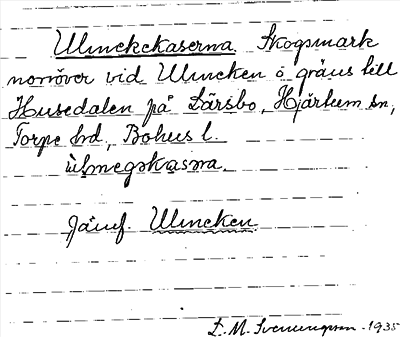 Ulmekekaserna. Skogsmark
norröver vid Ulmeken o gräns till
Husedalen på Lärsbo, Hjärtum sn,
Torpe hd, Bohus l.
ùlmegskasna.
Jämf. Ulmeken.
L. M. Svenungsson - 1935